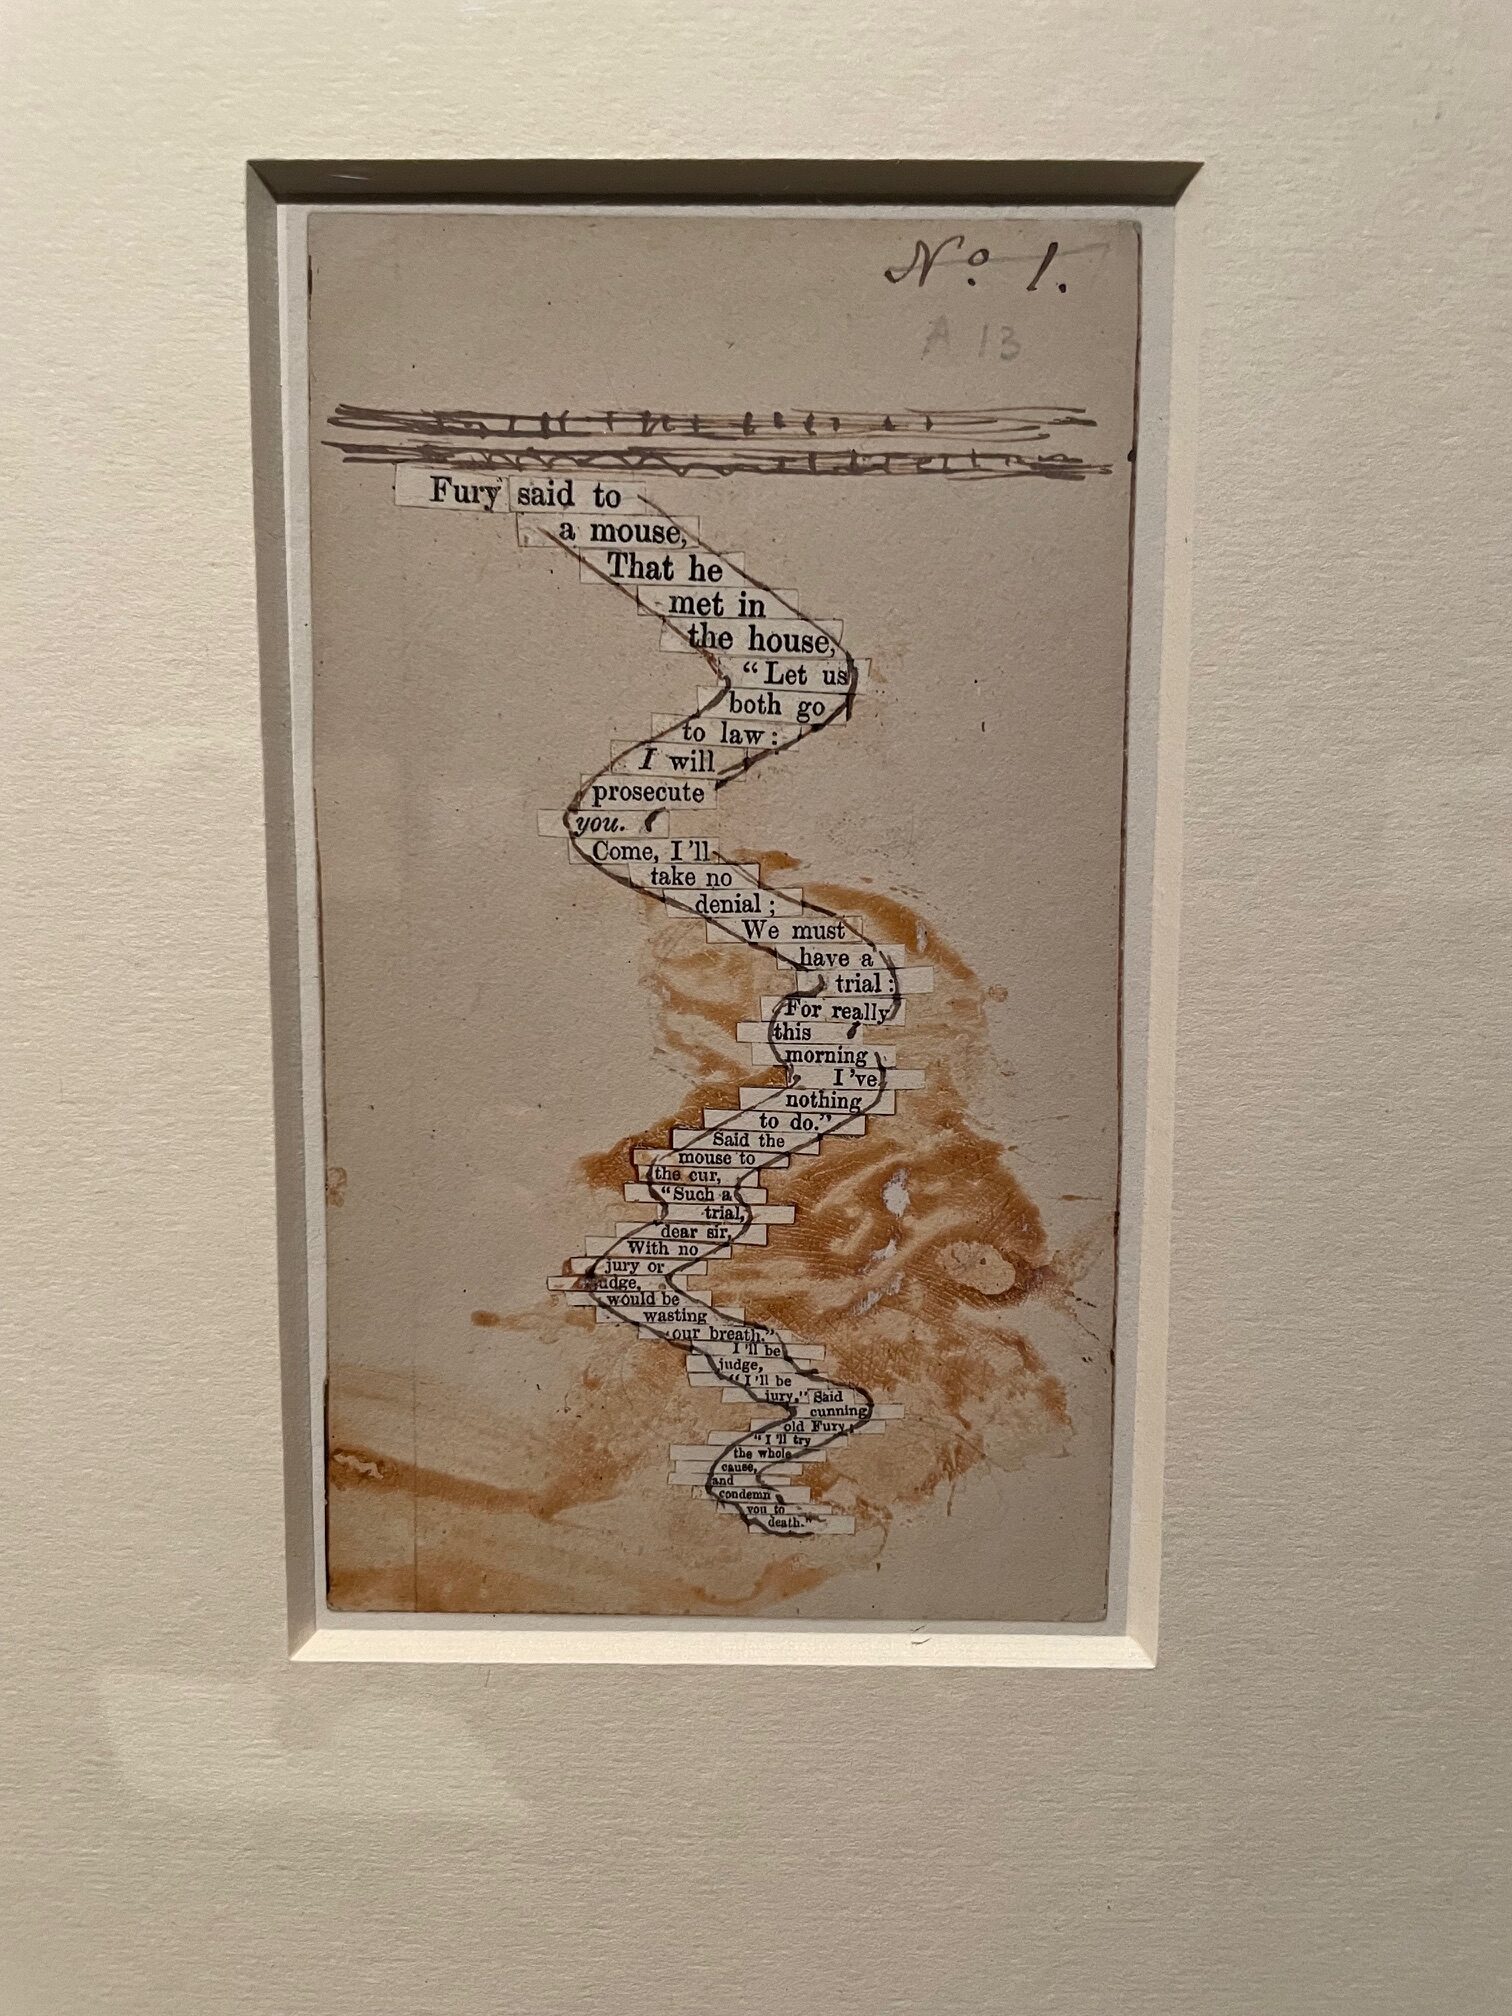 No. 1.
A 13
Fury said to
a mouse,
That he
met in
the house,
"Let us
both go
to law:
I will
prosecute
you.
Come, I'll
take no
denial;
We must
have a
trial:
For really
this
morning
I've
nothing
to do."
Said the
mouse to
the cur,
"Such a
trial,
dear sir,
With no
jury or
judge,
would be
wasting
our breath."
I'll be
judge,
"I'll be
jury." Said
cunning
old Fury;
"I'll try
the whole
cause,
and
condemn
you to
death."